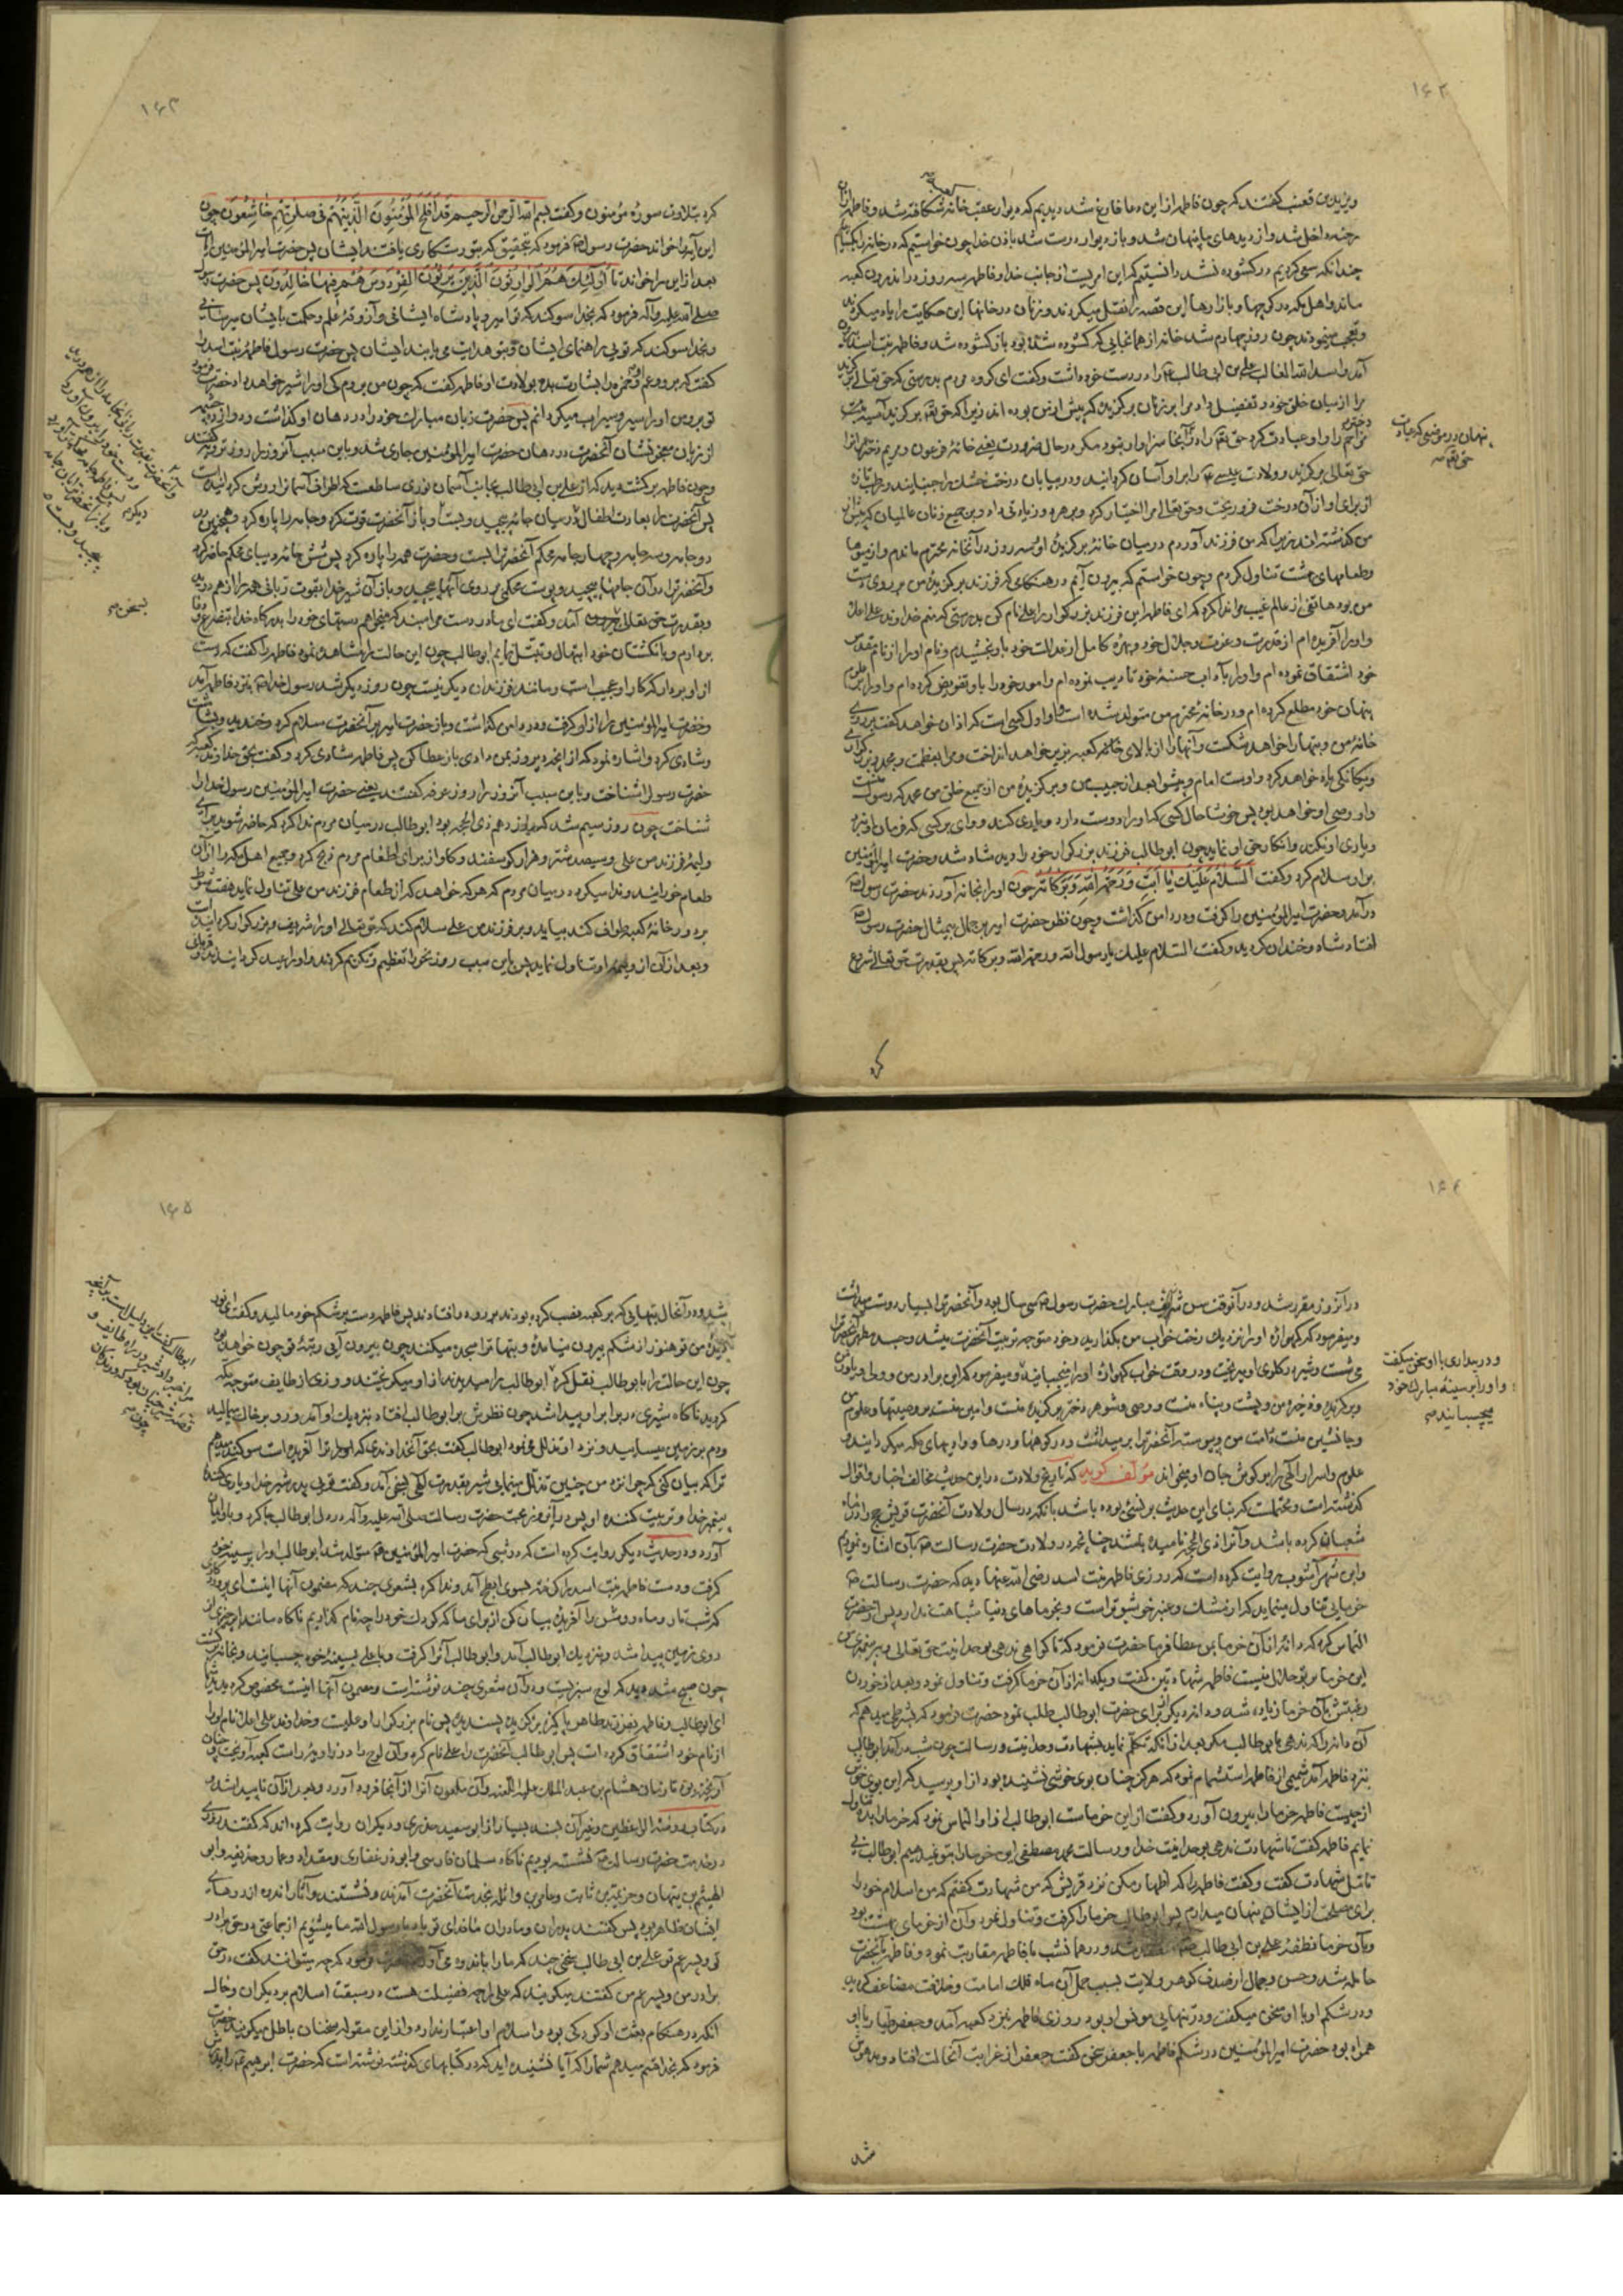 ۱۶۲
ویزید بن قعنب گفتند که چون فاطمه از این دعا فارغ شد دیدیم که دیوار عقب خانه شکافته شد و فاطمه از آن
رخنه داخل شد و از دیدهای ما پنهان شد و باز دیوار درست شد باذن خدا چون خواستیم که در خانه را بگشاییم
چندانکه سعی کردیم در گشوده نشد دانستیم که این امریست از جانب خدا و فاطمه سه روز در اندرون کعبه
ماند و اهل مکه در کوچها و بازارها این قصه را نقل میکردند و زنان در خانها این حکایت را یاد میکردند
و تعجب مینمودند چون روز چهارم شد خانه از همانجایی که گشوده شده بود باز گشوده شد و فاطمه بنت اسد بیرون
آمد و اسد الله الغالب علی بن ابی طالب را در دست خود داشت و گفت ای گروه مردم بدرستی که حق تعالی برگزید
مرا از میان خلق خود و تفضیل داد مرا بر زنان برگزیده که پیش از من بوده اند زیرا که حق تعم برگزید آسیه بنت
مزاحم را و او عبادت کرد حق تعم را در آنجا سزاوار نبود مگر در حال ضرورت یعنی خانهٔ فرعون و مریم دختر عمران
پنهان در موضعی که عبادت
حق تعم
حق تعالی برگزید و ولادت عیسی را بر او آسان گردانید و در بیابان درخت خشک را جنبانید و رطب تازه
از برای او از آن درخت فرو ریخت و حق تعالی مرا اختیار کرد و بر هر دو زیادتی داد و بر جمیع زنان عالمیان که پیش از
من گذشته اند زیرا که من فرزند آوردم در میان خانهٔ برگزیدهٔ او و سه روز در آنخانهٔ محترم ماندم و از میوها
و طعامهای بهشت تناول کردم و چون خواستم که بیرون آیم در هنگامی که فرزند برگزیدهٔ من بر روی دست
من بود هاتفی از عالم غیب مرا ندا کرد که ای فاطمه این فرزند بزرگوار را علی نام کن بدرستی که منم خداوند علی اعلا
و او را آفریده ام از قدرت و عزت و جلال خود و بهرهٔ کامل از عدالت خود باو بخشیدم و نام او را از نام مقدس
خود اشتقاق نموده ام و او را بآداب حسنهٔ خود تادیب نموده ام و امور خود را باو تفویض کرده ام و او را بر علوم
پنهان خود مطلع کرده ام و در خانهٔ محترم من متولد شده است و او اول کسی است که اذان خواهد گفت بر روی
خانهٔ من و بتها را خواهد شکست و آنها را از بالای خانهٔ کعبه بزیر خواهد انداخت و مرا بعظمت و مجد و بزرگواری
و یگانگی یاد خواهد کرد و اوست امام و پیشوا بعد از حبیب من و برگزیدهٔ من از جمیع خلق من محمد که رسول منست
و او وصی او خواهد بود پس خوشا حال کسی که او را دوست دارد و یاری کند و وای بر کسی که فرمان او نبرد
و یاری او نکند و انکار حق او نماید چون ابو طالب فرزند بزرگوار خود را دید شاد شد و حضرت امیر المؤمنین
بر او سلام کرد و گفت اَلسَّلامُ عَلَیْكَ یا اَبَتِ وَرَحْمَةُ اللهِ وَبَرَکاتُهُ چون او را بخانه آوردند حضرت رسول
درآمد و حضرت امیر المؤمنین را گرفت و در دامن گذاشت و چون نظر حضرت امیر بر جمال بیمثال حضرت رسول
افتاد شاد و خندان گردید و گفت السلام علیك یا رسول الله و رحمة الله و برکاته پس بقدرت حق تعالی شروع
کرد
۱۶۳
کرد بتلاوت سورهٔ مؤمنون و گفت بسم الله الرحمن الرحیم قد افلح المؤمنون الذین هم فی صلاتهم خاشعون چون
این آیه را خواند حضرت رسول فرمود که بتحقیق که بتو رستگاری یافتند ایشان پس حضرت امیر المؤمنین آیات
بعد از این را خواند تا اولئك هم الوارثون الذین یرثون الفردوس هم فیها خالدون پس حضرت رسول
صلی الله علیه و آله فرمود که بخدا سوگند که تو امیر و پادشاه ایشانی و آزوقهٔ علم و حکمت بایشان میرسانی
و بخدا سوگند که تویی راهنمای ایشان و بتو هدایت می یابند ایشان پس حضرت رسول فاطمه بنت اسد را
گفت که برو و عم او حمزه را بشارت بده بولادت او فاطمه گفت که چون من بروم کی او را شیر خواهد داد حضرت فرمود
تو برو من او را سیر و سیراب میگردانم پس حضرت زبان مبارك خود را در دهان او گذاشت و دوازده چشمه
از زبان معجز نشان آنحضرت در دهان حضرت امیر المؤمنین جاری شد و باین سبب آنروز را روز ترویه گفتند
و چون فاطمه برگشت دید که از علی بن ابی طالب بجانب آسمان نوری ساطعست که اطراف آسمان را روشن گردانیده است
پس آنحضرت را بعادت اطفال در میان جامه پیچید و بست و باز آنحضرت قوت کرد و جامه را پاره کرد و همچنین در
دو جامه و سه جامه و چهار جامهٔ محکم آنحضرت را بست و حضرت همه را پاره کرد پس شش جامهٔ دیبای محکم حاضر کرد
و آنحضرت را در آن جامها پیچید و پوست محکمی بر روی آنها پیچید و باز آن شیر خدا بقوت ربانی همه را از هم درید
و بقدرت حق تعالی آمد و گفت ای مادر دست مرا مبند که میخواهم دستهای خود را بدرگاه خدا بتضرع و دعا
بسخن
بردارم و بانگشتان خود ابتهال و تبتل نمایم ابو طالب چون این حالت را مشاهده نمود فاطمه را گفت که دست
از او بردار که کار او عجیب است و مانند فرزندان دیگر نیست چون روز دیگر شد رسول خدا بنزد فاطمه آمد
و حضرت امیر المؤمنین را از او گرفت و در دامن گذاشت و باز حضرت امیر بر آنحضرت سلام کرد و خندید و بشاشت
و شادی کرد و اشاره نمود که از آنچه دیروز بمن دادی باز عطا کن پس فاطمه شادی کرد و گفت بحق خداوند کعبه که
حضرت رسول را شناخت و باین سبب آنروز را روز عرفه گفتند یعنی حضرت امیر المؤمنین رسول خدا را
شناخت چون روز سیم شد که روز دهم ذی الحجه بود ابو طالب در میان مردم ندا کرد که حاضر شوید برای
ولیمهٔ فرزند من علی و سیصد شتر و هزار گوسفند و گاو از برای اطعام مردم ذبح کرد و جمیع اهل مکه را از آن
طعام خورانید و ندا میکرد در میان مردم که هر که خواهد که از طعام فرزند من علی تناول نماید هفت شوط
بر دور خانهٔ کعبه طواف کند بیاید و بر فرزند من علی سلام کند که حق تعالی او را شریف و بزرگوار گردانیده است
و بعد از آن از ولیمهٔ او تناول نماید پس باین سبب روز نحر را تعظیم و تکریم کردند و او را عید گردانیدند
۱۶۴
در آنروز مقرر شد و در آنوقت سن شریف مبارك حضرت رسول سی سال بود و آنحضرت را بسیار دوست میداشت
و میفرمود که گهوارهٔ او را نزدیك رخت خواب من بگذارید و خود متوجه تربیت آنحضرت میشد و جسد مطهر آنحضرت را
می شست و شیر در گلوی او میریخت و در وقت خواب گهوارهٔ او را میجنبانید و میفرمود که این برادر من و ولی و یاور من
و در بیداری با او سخن میگفت
و او را بر سینهٔ مبارك خود
میچسبانید
و برگزیده و ذخیرهٔ من و پشت و پناه منست و وصی و شوهر دختر برگزیدهٔ منست و امین منست بر وصیتها و علوم من
و جانشین منست در امت من و پیوسته آنحضرت را بر میداشت و در کوهها و درها و وادیهای مکه میگردانید و
علوم و اسرار الهی را بر گوش جان او میخواند مؤلف گوید که تاریخ ولادت در این حدیث مخالف اخبار و اقوال
گذشته است و محتملست که بنای این حدیث بر نسیء بوده باشد بآنکه در سال ولادت آنحضرت قریش حج را در ماه
شعبان کرده باشند و آنرا ذی الحجه نامیده باشند چنانچه در ولادت حضرت رسالت بآن اشاره نمودیم
و ابن شهر آشوب روایت کرده است که روزی فاطمه بنت اسد رضی الله عنها دید که حضرت رسالت
خرمایی تناول مینماید که از مشك و عنبر خوشبوتر است و بخرماهای دنیا شباهت ندارد پس از حضرت
التماس کرد که دانهٔ از آن خرما بمن عطا فرما حضرت فرمود که تا گواهی ندهی بوحدانیت حق تعالی و پیغمبری من
این خرما بر تو حلال نیست فاطمه شهادتین گفت و یکدانه از آن خرما گرفت و تناول نمود و بعد از خوردن
رغبتش بآن خرما زیاده شد و دانه دیگر از برای حضرت ابو طالب طلب نمود حضرت فرمود که بشرطی میدهم که
آن دانه را که ندهی بابو طالب مگر بعد از آنکه تکلم نماید بشهادت وحدانیت و رسالت چون شب درآمد ابو طالب
بنزد فاطمه آمد شمیمی از فاطمه استشمام نمود که هرگز چنان بوی خوشی نشنیده بود از او پرسید که این بوی خوش
از چیست فاطمه خرما را بیرون آورد و گفت از این خرماست ابو طالب از او التماس نمود که خرما را بده تناول
نمایم فاطمه گفت تا شهادت ندهی بوحدانیت خدا و رسالت محمد مصطفی این خرما را بتو نمیدهم ابو طالب بی
تامل شهادت گفت و گفت فاطمه را که اظهار مکن نزد قریش که من شهادت گفتم که من اسلام خود را
برای مصلحتی از ایشان پنهان میدارم پس ابو طالب خرما را گرفت و تناول نمود و آن از خرمای بهشت بود
و بآن خرما نطفهٔ علی بن ابی طالب منعقد شد و در همانشب با فاطمه مقاربت نمود و فاطمه بآنحضرت
حامله شد و حسن و جمال او صدف گوهر ولایت بسبب حمل آن ماه فلك امامت و خلافت مضاعف گردید
و در شکم او با او سخن میگفت و در تنهایی مونس او بود روزی فاطمه بنزد کعبه آمد و جعفر طیار با او
همراه بود حضرت امیر المؤمنین در شکم فاطمه با جعفر سخن گفت جعفر از غرابت آنحالت افتاد و مدهوش
شد
۱۶۵
شد و در آنحال بتهایی که بر کعبه نصب کرده بودند بر رو در افتادند پس فاطمه دست بر شکم خود مالید و گفت ای نور
دیدهٔ من تو هنوز از شکم بیرون نیامدهٔ و بتها ترا سجده میکنند چون بیرون آیی رتبهٔ تو چون خواهد بود
چون این حالت را بابو طالب نقل کرد ابو طالب را میدیدند از او میگریختند و روزی از طایف متوجه مکه
گردید ناگاه شیری در برابر او پیدا شد چون نظرش بر ابو طالب افتاد بنزدیك او آمد و رو بر خاك میمالید
و دم بر زمین میسایید و نزد او تذلل می نمود ابو طالب گفت بحق آنخداوندی که ترا آفریده است سوگند میدهم
ترا که بیان کنی که چرا نزد من چنین تذلل مینمایی شیر بقدرت الهی بسخن آمد و گفت تویی پدر شیر خدا و یاری کنندهٔ
پیغمبر خدا و تربیت کنندهٔ او پس در آنروز محبت حضرت رسالت صلی الله علیه و آله در دل ابو طالب جا کرد و باو ایمان
آورد و در حدیث دیگر روایت کرده است که در شبی که حضرت امیر المؤمنین متولد شد ابو طالب او را بر سینهٔ خود
گرفت و دست فاطمه بنت اسد را گرفته بسوی ابطح آمد و ندا کرد بشعری چند که مضمون آنها اینست ای پروردگاری
که شب تار و ماه روشن را آفریدهٔ بیان کن از برای ما که کودك خود را چه نام گذاریم ناگاه مانند ابر چیزی از
روی زمین پیدا شد و بنزدیك ابو طالب آمد و ابو طالب آنرا گرفت و با علی بسینهٔ خود چسبانید و بخانه برگشت
چون صبح شد دید که لوح سبزیست و در آن شعری چند نوشته است و مضمون آنها اینست مخصوص گردیدید شما
ای ابو طالب و فاطمه بفرزند طاهر پاکیزهٔ برگزیدهٔ پسندیده پس نام بزرگوار او علیست و خداوند علی اعلا نام او را
از نام خود اشتقاق کرده است پس ابو طالب آنحضرت را علی نام کرد و آن لوح را در زاویهٔ راست کعبه آویخت و چنان
آویخته بود تا زمان هشام بن عبد الملك علیه اللعنه و آن ملعون آنرا از آنجا فرود آورد و بعد از آن ناپیدا شد و
در کتاب روضة الواعظین و غیر آن بسند بسیار از ابو سعید خدری و دیگران روایت کرده اند که گفتند روزی
در خدمت حضرت رسالت نشسته بودیم ناگاه سلمان فارسی و ابوذر غفاری و مقداد و عمار و حذیفه و ابو
الهیثم بن تیهان و خزیمة بن ثابت و عامر بن واثله بخدمت آنحضرت آمدند و نشستند و آثار اندوه از روهای
ایشان ظاهر بود پس گفتند پدران و مادران ما فدای تو باد یا رسول الله ما میشنویم از جماعتی در حق برادر
تو و پسر عم تو علی بن ابی طالب سخنی چند که ما را باندوه می آورد حضرت فرمود که چه میتوانند گفت در حق
برادر من و پسر عم من گفتند میگویند که علی را چه فضیلت هست در سبقت اسلام بر دیگران و حال
آنکه در هنگام بعثت او کودکی بود و اسلام او اعتبار ندارد و از این مقوله سخنان باطل میگویند حضرت
فرمود که بخدا قسم میدهم شما را که آیا نشنیده اید که در کتابهای گذشته نوشته است که حضرت ابراهیم را پدرش